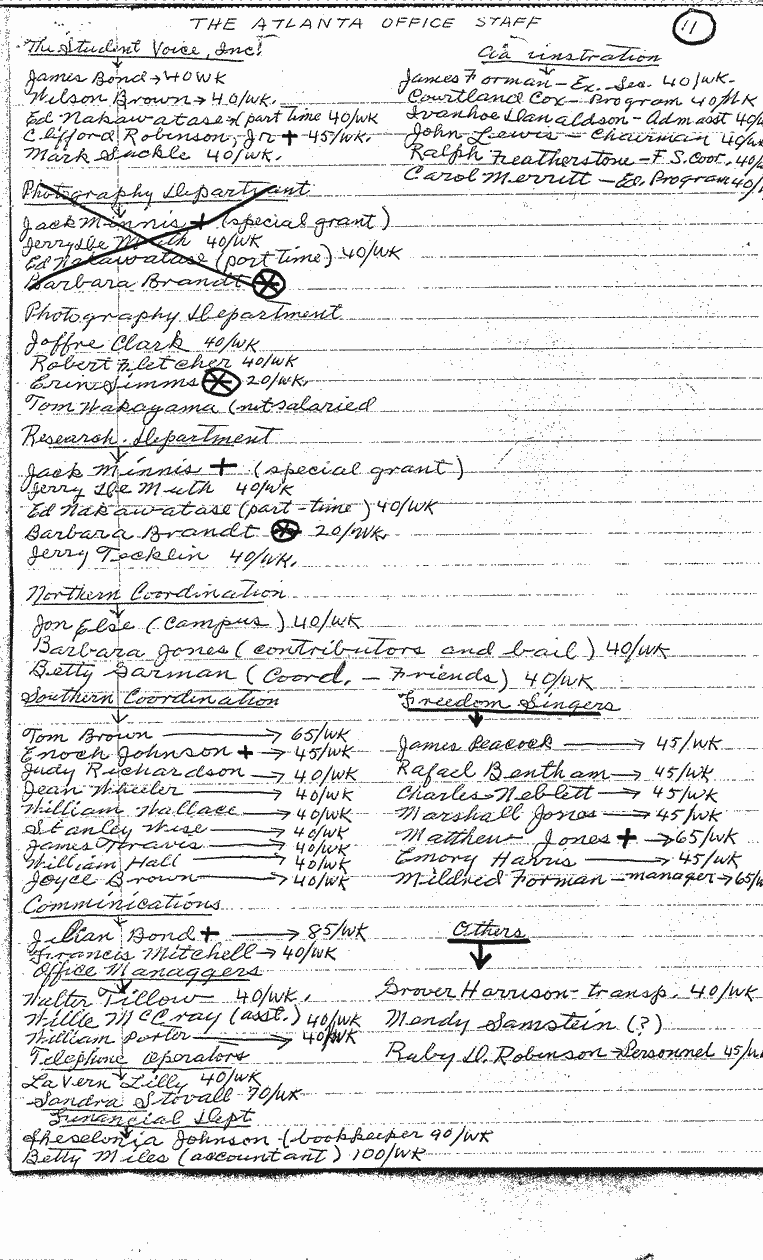 THE ATLANTA OFFICE STAFF
11
The Student Voice, Inc.
James Bond → 40 WK
Wilson Brown → 40/WK.
Ed Nakawatase part time 40/WK
Clifford Robinson, Jr + 45/WK.
Mark Suckle 40/WK.
James Forman - Ex. Sec. 40/WK.
Courtland Cox - Program 40/WK
Ivanhoe Danaldson - Adm asst 40/
John Lewis - Chairman 40/WK
Ralph Featherstone - F.S. Coor. 40/
Carol Merritt - Ed. Program 40/
Photography Department
Jack Minnis + (special grant)
Jerry De Muth 40/WK
Ed Nakawatase (part time) 40/WK
Barbara Brandt
Photography Department
Joffre Clark 40/WK
Robert Fletcher 40/WK
Erin Simms 20/WK.
Tom Wakayama (not salaried
Research Department
Jack Minnis + (special grant)
Jerry De Muth 40/WK
Ed Nakawatase (part-time) 40/WK
Barbara Brandt 20/WK.
Jerry Tecklin 40/WK.
Northern Coordination
Jon Else (Campus) 40/WK
Barbara Jones (contributors and bail) 40/WK
Betty Garman (Coord. - Friends) 40/WK
Southern Coordination
Tom Brown → 65/WK
Enoch Johnson + → 45/WK
Judy Richardson → 40/WK
Jean Wheeler → 40/WK
William Wallace → 40/WK
Stanley Wise → 40/WK
James Travis → 40/WK
William Hall → 40/WK
Joyce Brown → 40/WK
Freedom Singers
James Peacock → 45/WK
Rafael Bentham → 45/WK
Charles Neblett → 45/WK
Marshall Jones → 45/WK
Matthew Jones + → 65/WK
Emory Harris → 45/WK
Mildred Forman - manager → 65/W
Comminications
Julian Bond + → 85/WK
Francis Mitchell → 40/WK
Office Managgers
Walter Tillow 40/WK.
Willie McCray (asst.) 40/WK
William Porter → 40/WK
Telephone Operators
LaVern Lilly 40/WK
Sandra Stovall 70/WK
Financial Dept
Sheselonia Johnson - (bookkeeper 90/WK
Betty Miles (accountant) 100/WK
Others
Grover Harrison - transp. 40/WK
Mendy Samstein (?)
Ruby D. Robinson → Personnel 45/W